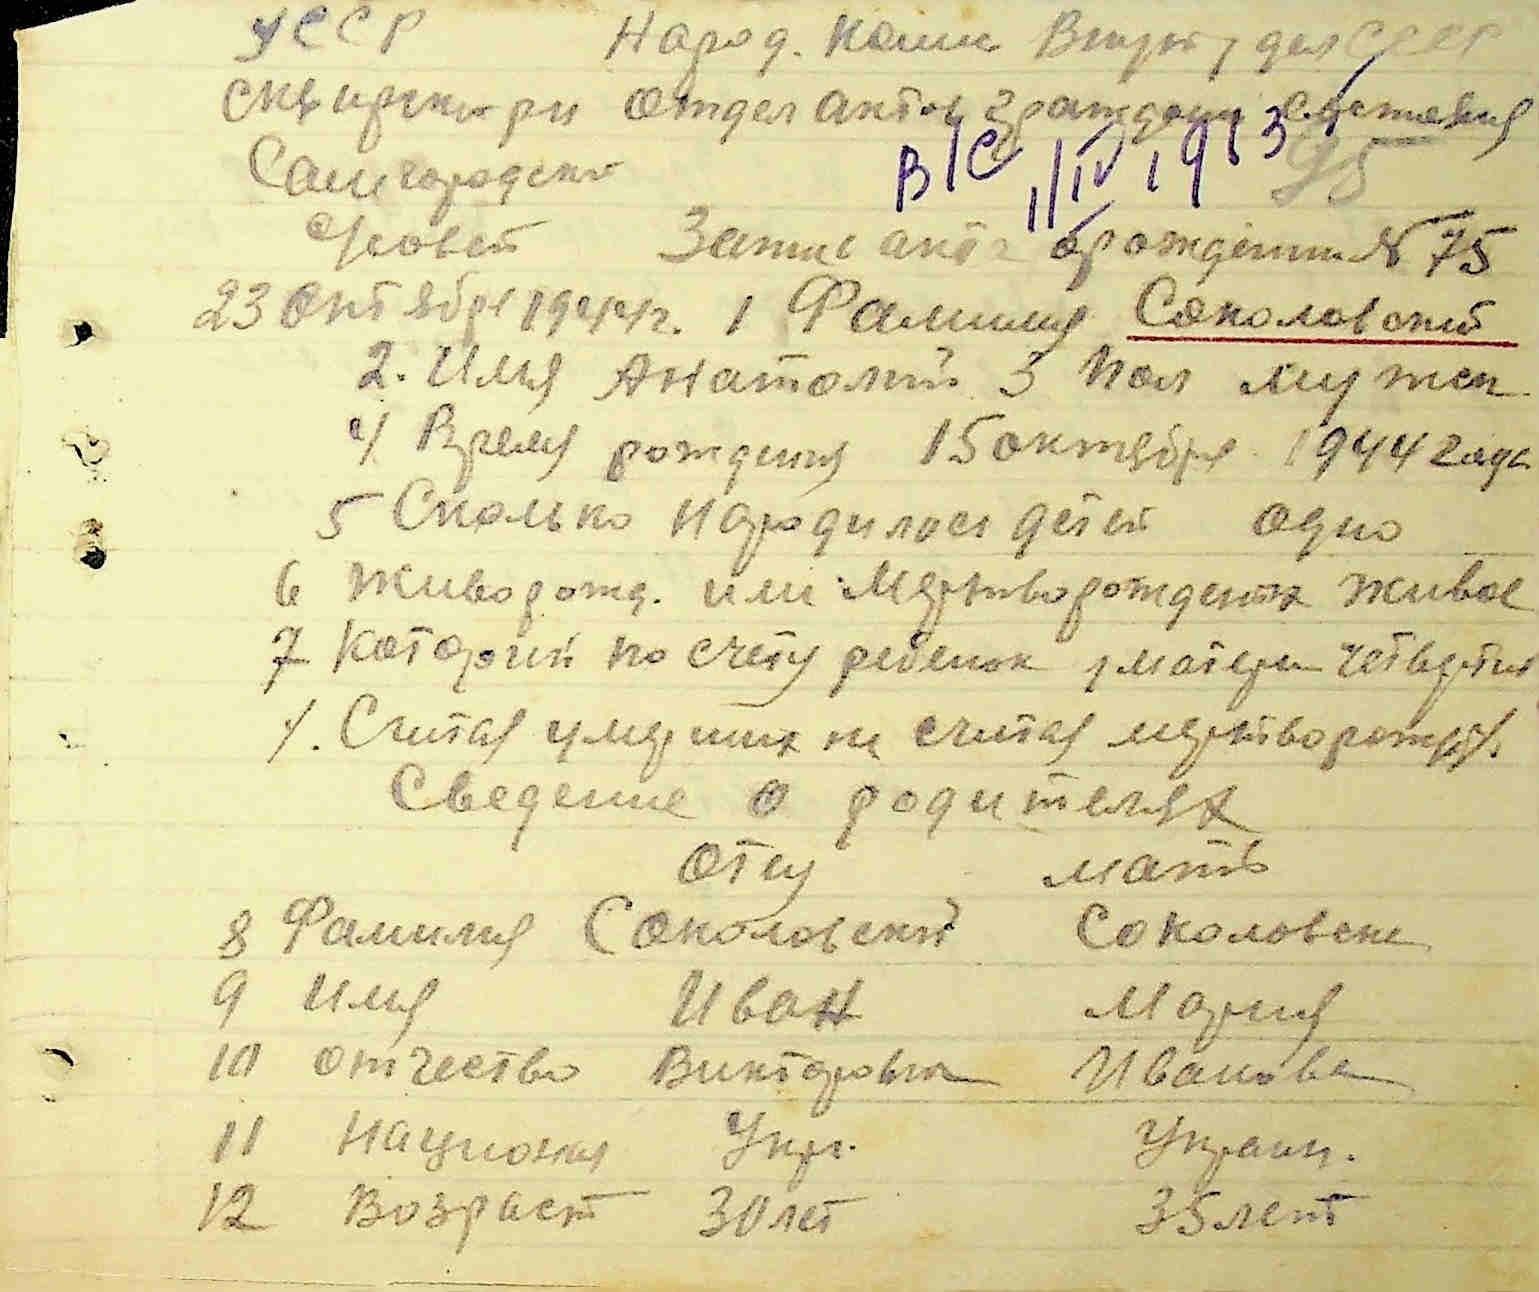 УССР Народ. Комис Внутр дел СССР
Сквирски рн Отдел актов гражданс состояния
Самгородски 95
В/С 1/IV 1953
с/совет Запис акта о рождении № 75
23 октября 1944г. 1 Фамилия Соколовский
2. Имя Анатолий 3 Пол мужск
4 Время рождения 15 октября 1944 года
5 Сколько народилось детей одно
6 Живорожд. или мертворожденых живое
7 Который по счету ребенок у матери четвертый
Считая умерших не считая мертворожд.
Сведение о родителях
Отец мать
8 Фамилия Соколовский Соколовска
9 Имя Иван Мария
10 Отчество Викторович Ивановна
11 Национал Укр. Украин.
12 Возраст 30 лет 35 лет